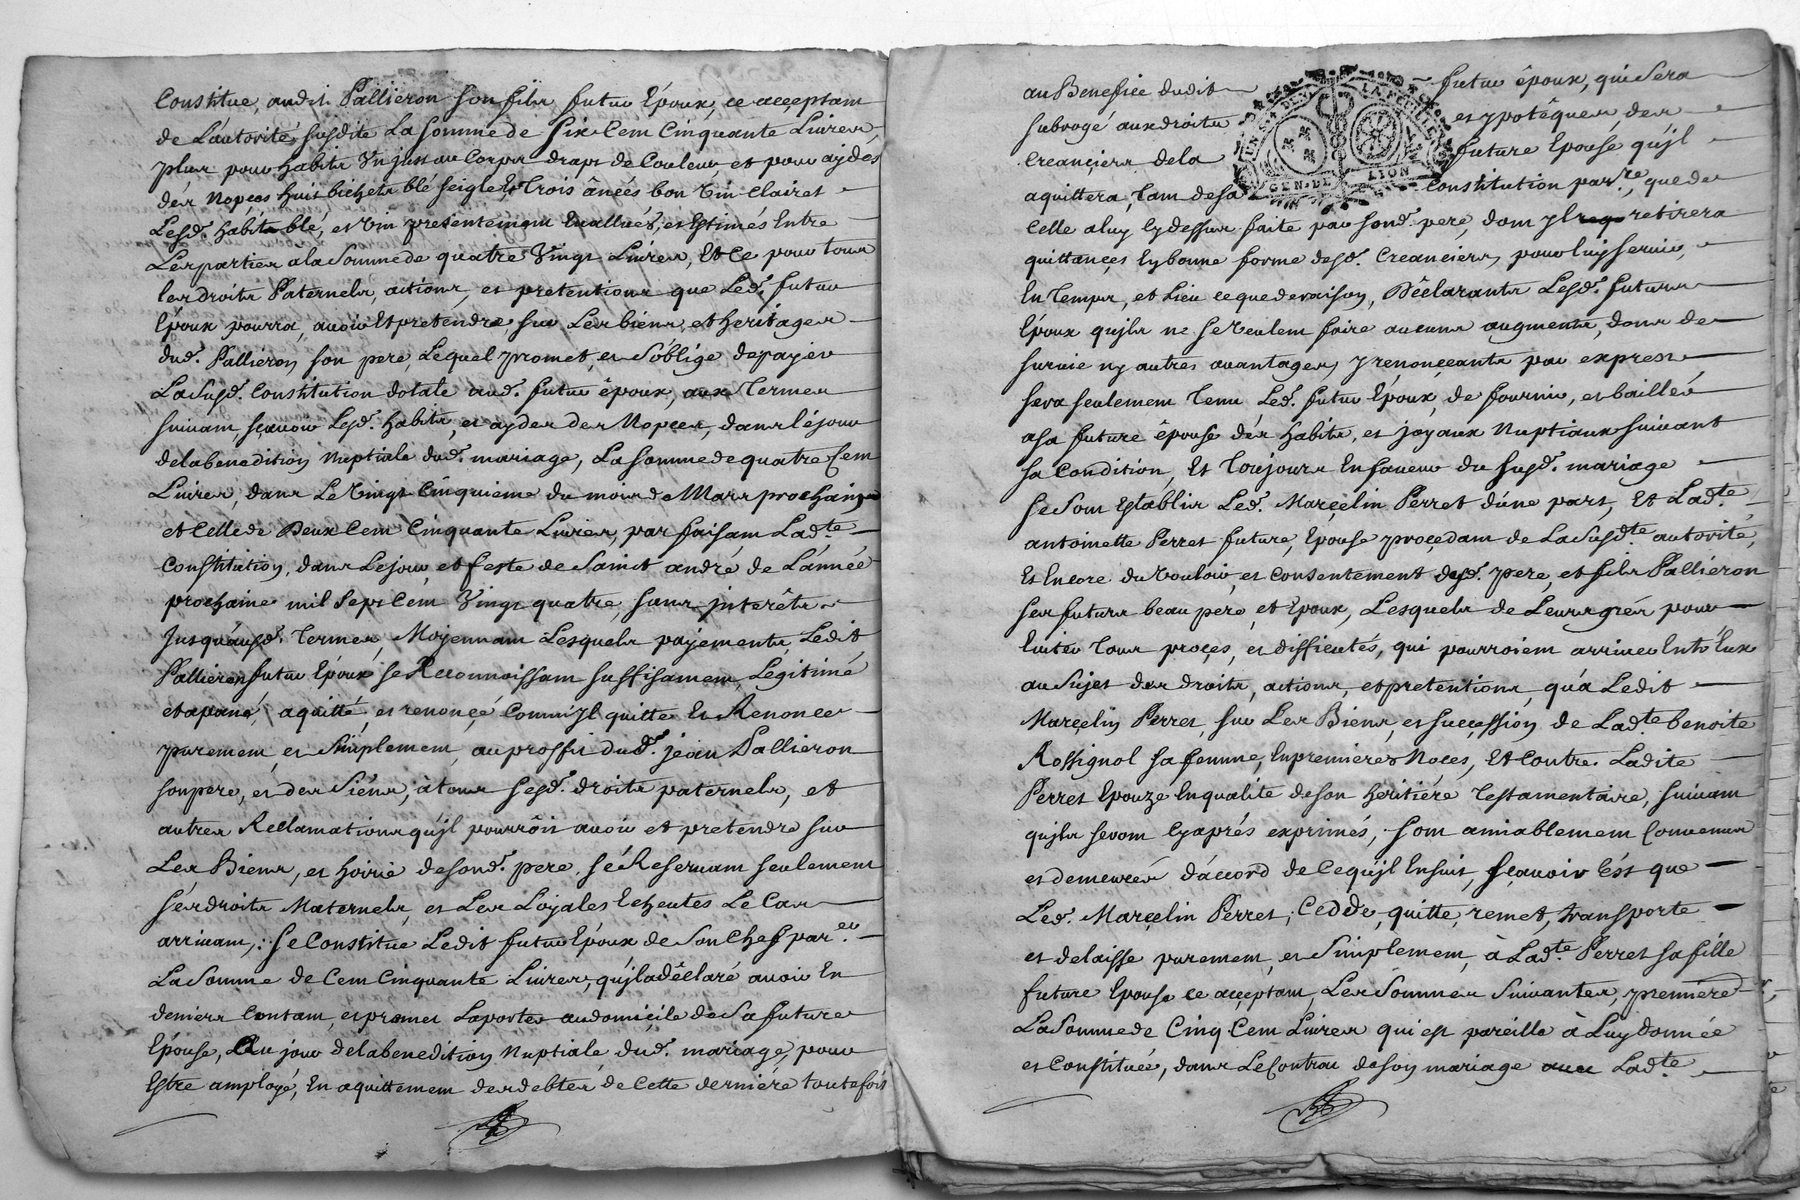 Constitue, audit Pallieron son fils futur Epoux, ce acceptam
de L'autorité susdite La somme de Six Cem Cinquante Livres,
plus pour habits Un just au Corps draps de Couleur, et pour aydes
dés Nopces huit bichets blé seigle, Et Trois ânées bon Vin Clairet
Lesd. habits blé, et Vin presentement Evallués, et Estimés Entre
Les parties a la Somme de quatre Vingt Livres, Et Ce pour tous
les droits Paternels, actions, et pretentions que Led. futur
Epoux pourra, avoir Et pretendre sur Les biens, et heritages
dud. Pallieron son pere, Lequel promet, et S'oblige de payer
La Susd. Constitution dotale aud. futur êpoux, aux Termes
suivam, sçavoir Lesd. habits, et aydes des Nopces, dans lé jour
de la benedition Nuptiale dud. mariage, La somme de quatre Cem
Livres, dans Le Vingt Cinquieme du mois de Mars prochain
et Celle de Deux Cem Cinquante Livres, par faisam Lad.te
Constitution, dans Le jour, et feste de Sainct andré de L'année
prochaine mil Sept Cem Vingt quatre, sans intérêts
Jusqu'ausd. Termes, Moyennam Lesquels payements, Ledit
Pallieron futur Epoux se Reconnoissam suffisamem, Legitimé
et apané, aquitté, et renonçé Comm'jl quitte Et Renonce
purement, et Simplement, au proffit dud. jean Pallieron
son pere, et des Siéns, à tous sesd. droits paternels, et
autres Reclamations qu'jl pourrôit avoir et pretendre sur
Les Biens, et hoirie de sond. pere, sé Reservam seulement
sés droits Maternels, et Les Loyales Echeutes Le Cas
arrivam, : se Constitue Ledit futur Epoux de Son Chef par.er
La Somme de Cem Cinquante Livres, qu'jl a dêclaré avoir En
deniers Contam, et promet La porter au domiçile de Sa future
Epouse, Au jour de la benedition Nuptiale dud. mariage, pour
Estre amployé, En aquittement des debtes de Cette derniére toutefois
au Benefice dudit futur êpoux, qui Sera
subrogé aux droits et ypotêques des
Creançiers de la future Epouse qu'jl
aquittera, Tam de sa Constitution par.re, que de
Celle a luy Cy dessus faite par sond. pere, dom jl retirera
quittançes En bonne forme desd. Creanciers, pour luy servir,
En Temps, et Lieu ce que de raison, Déclarants Lesd. futurs
Epoux qu'jls ne se Veulem faire aucuns augments, dons de
survie ny autres avantages, y renonçeants par express
sera seulement Tenu Led. futur Epoux, de fournir, et bailler
a sa future êpouse dés habits, et joyaux Nuptiaux suivant
sa Condition, Et Toujours En faveur du susd. mariage
se Som Establis Led. Marçelin Perret d'une part, Et Lad.te
antoinette Perret future, Epouse proçedam de La Susd.te autorité,
Et Encore du Vouloir, et Consentement desd. pere, et fils Pallieron
ses futurs beau pere, et Epoux, Lesquels de Leurs grés pour
Eviter Tous proçes, et difficutés, qui pourroiem arriver Entr'Eux
au Sujet des droits, actions, et pretentions, qu'a Ledit
Marçelin Perret, sur Les Biens, et sucçession de Lad.te benoite
Rossignol sa femme, En premieres Noces, Et Contre Ladite
Perret Epouze En qualité de son heritiére Testamentaire, suivam
qu'jls serom Cy aprés exprimés, som amiablement Convenus
et demeurés d'accord de Ce qu'jl Ensuit, sçavoir C'est que
Led. Marçelin Perret, Cedde, quitte, remet, transporte
et delaisse purement, et Simplement, à Lad.te Perret sa fille
future Epouse ce acceptam, Les Sommes Suivantes, premiére
La Somme de Cinq Cem Livres qui est pareille à Luy donnée
et Constituée, dans Le Contrac de son mariage avec Lad.te
GEN. DE LYON